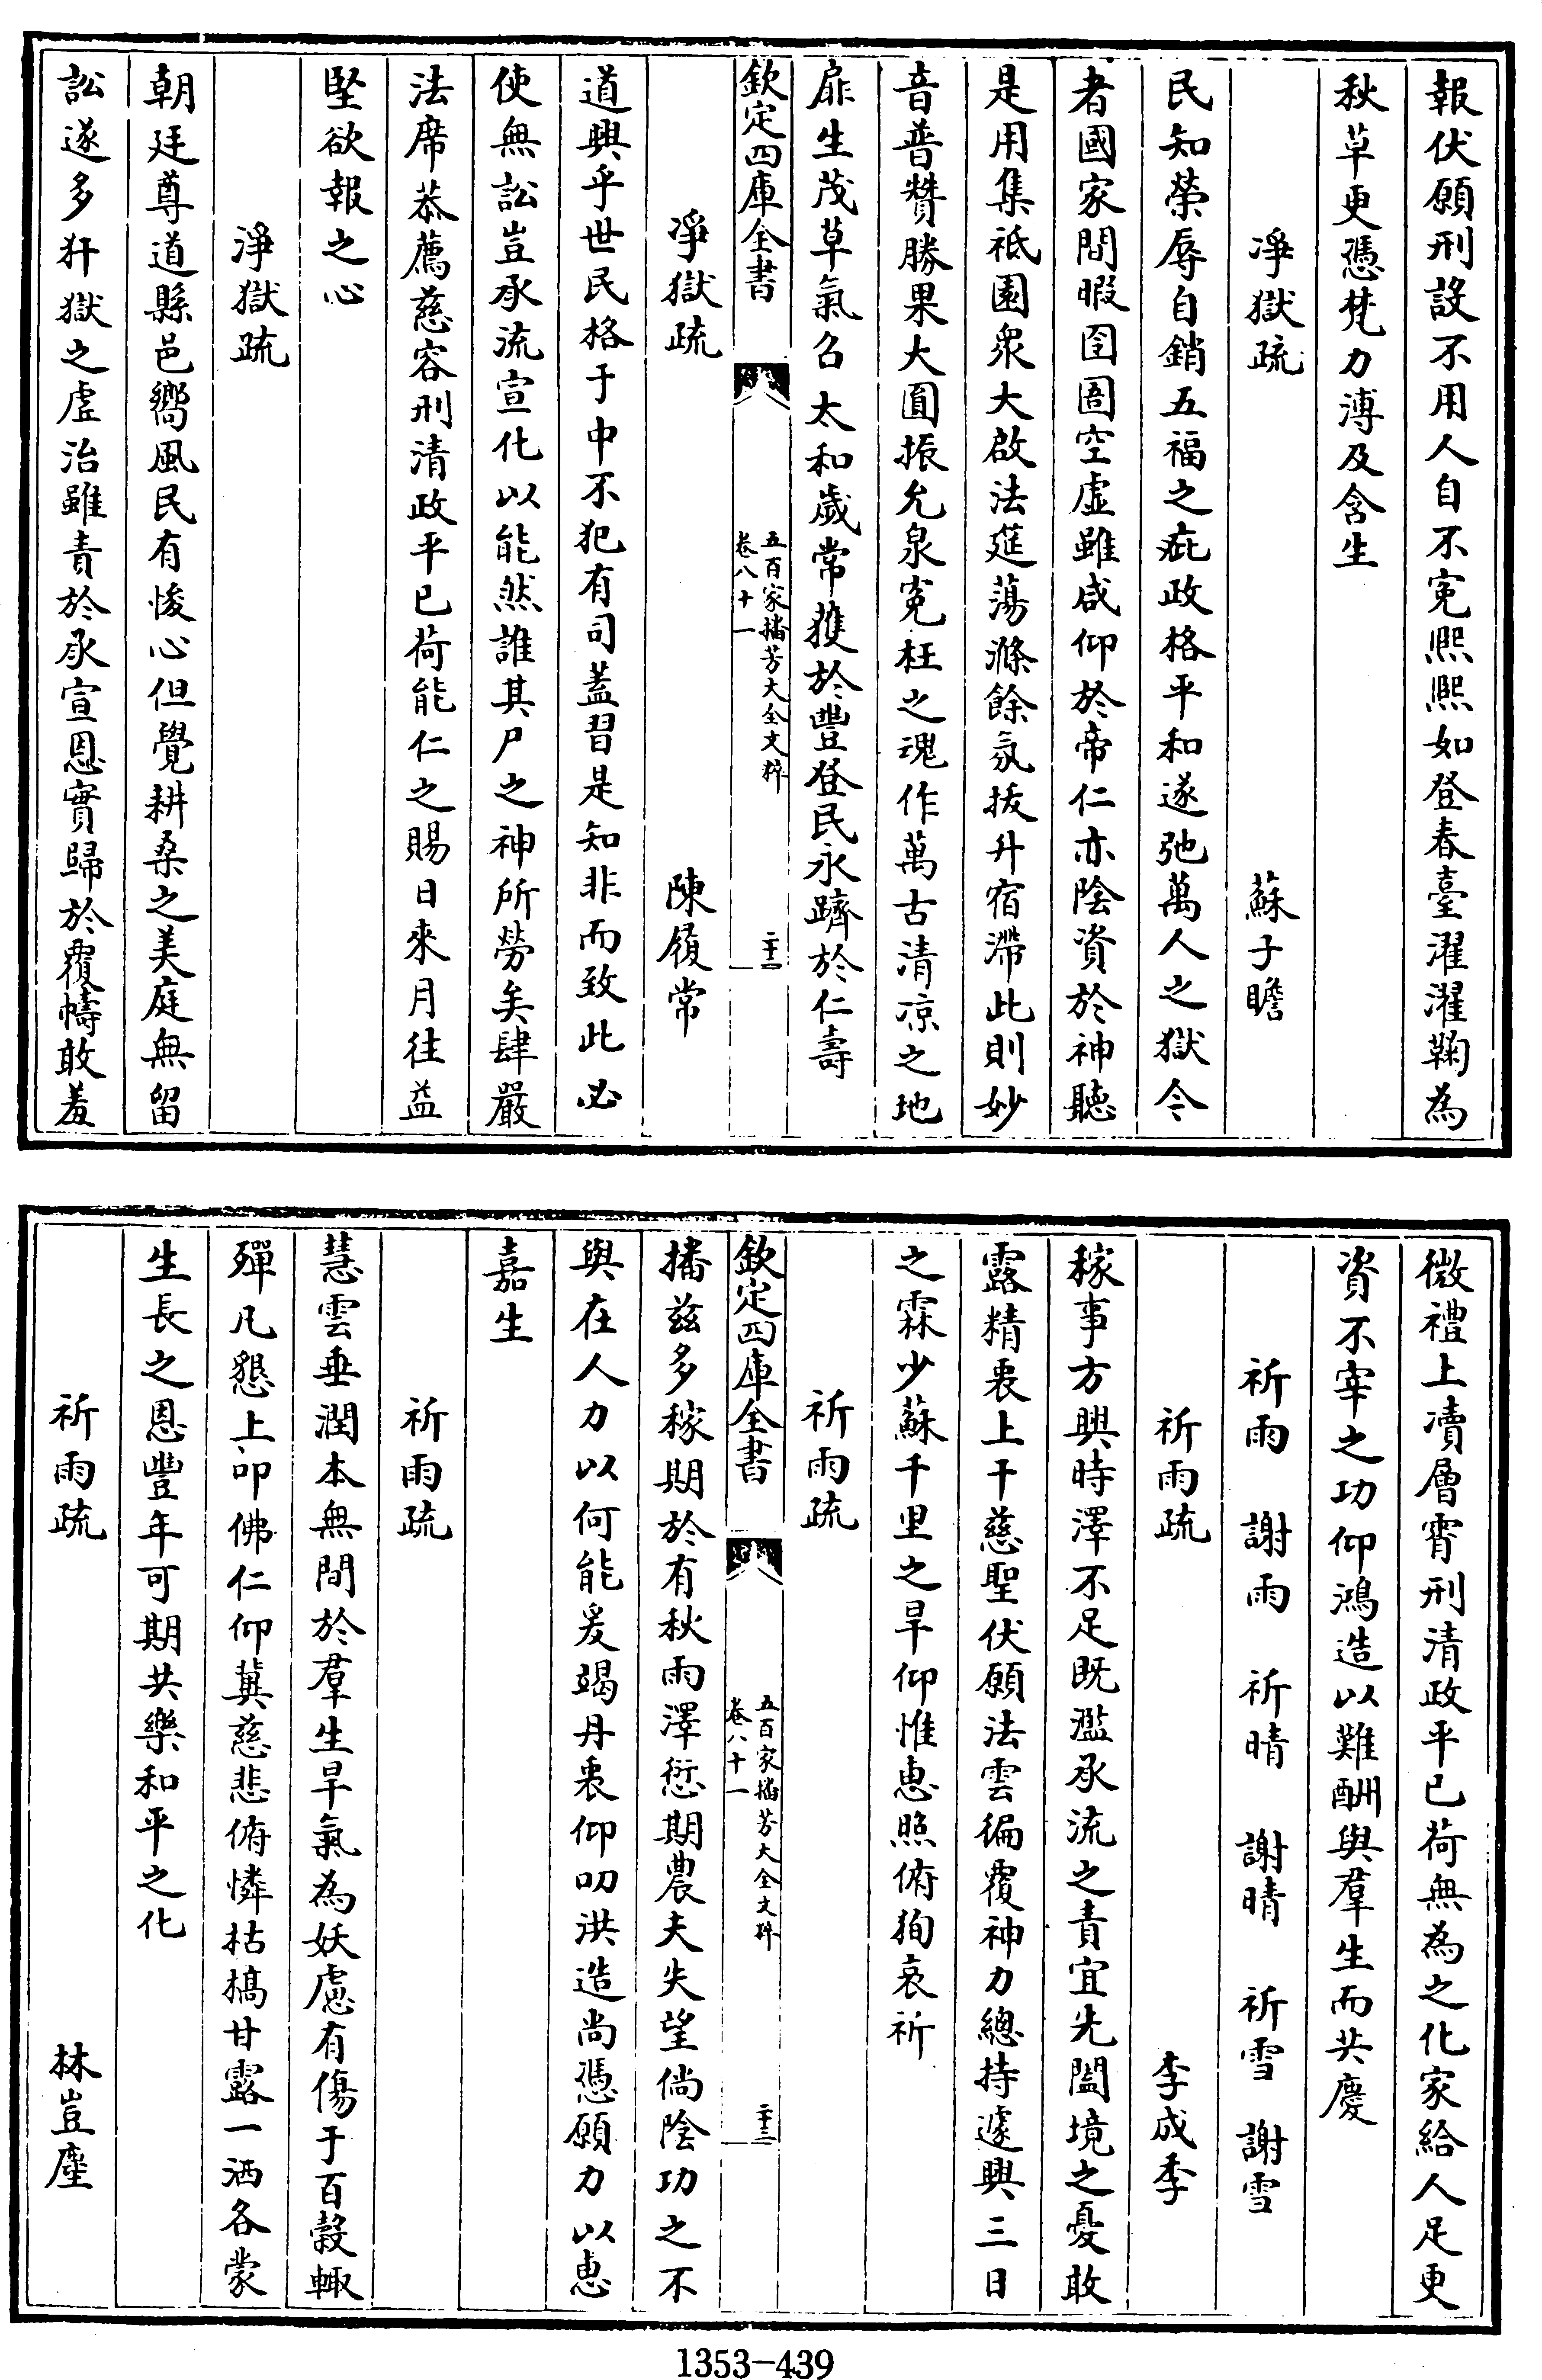 報伏願刑設不用人自不寃熈熈如登春臺濯濯鞠為
秋草更憑梵力溥及含生
淨獄疏　蘇子瞻
民知榮辱自銷五福之疵政格平和遂弛萬人之獄今
者國家間暇囹圄空虛雖咸仰於帝仁亦陰資於神聽
是用集祗園衆大啟法筵蕩滌餘氛拔升宿滯此則妙
音普贊勝果大圓振允泉寃枉之魂作萬古清凉之地
扉生茂草氣召太和歲常獲於豐登民永躋於仁壽
欽定四庫全書　五百家播芳大全文粹　卷八十一　二十二
淨獄疏　陳履常
道興乎世民格于中不犯有司蓋習是知非而致此必
使無訟豈承流宣化以能然誰其尸之神所勞矣肆嚴
法席恭薦慈容刑清政平已荷能仁之賜日來月往益
堅欲報之心
淨獄疏
朝廷尊道縣邑嚮風民有悛心但覺耕桑之美庭無留
訟遂多犴獄之虛治雖責於承宣恩實歸於覆幬敢羞
微禮上瀆層霄刑清政平已荷無為之化家給人足更
資不宰之功仰鴻造以難酬與羣生而共慶
祈雨　謝雨　祈晴　謝晴　祈雪　謝雪
祈雨疏　李成季
稼事方興時澤不足既濫承流之責宜先闔境之憂敢
露精衷上干慈聖伏願法雲徧覆神力總持遽興三日
之霖少蘇千里之旱仰惟惠照俯狥哀祈
祈雨疏
欽定四庫全書　五百家播芳大全文粹　卷八十一　二十三
播兹多稼期於有秋雨澤愆期農夫失望倘陰功之不
與在人力以何能爰竭丹衷仰叨洪造尚憑願力以惠
嘉生
祈雨疏
慧雲垂潤本無間於羣生旱氣為妖慮有傷于百穀輙
殫凡懇上叩佛仁仰冀慈悲俯憐枯槁甘露一洒各蒙
生長之恩豐年可期共樂和平之化
祈雨疏　林豈塵
1353-439